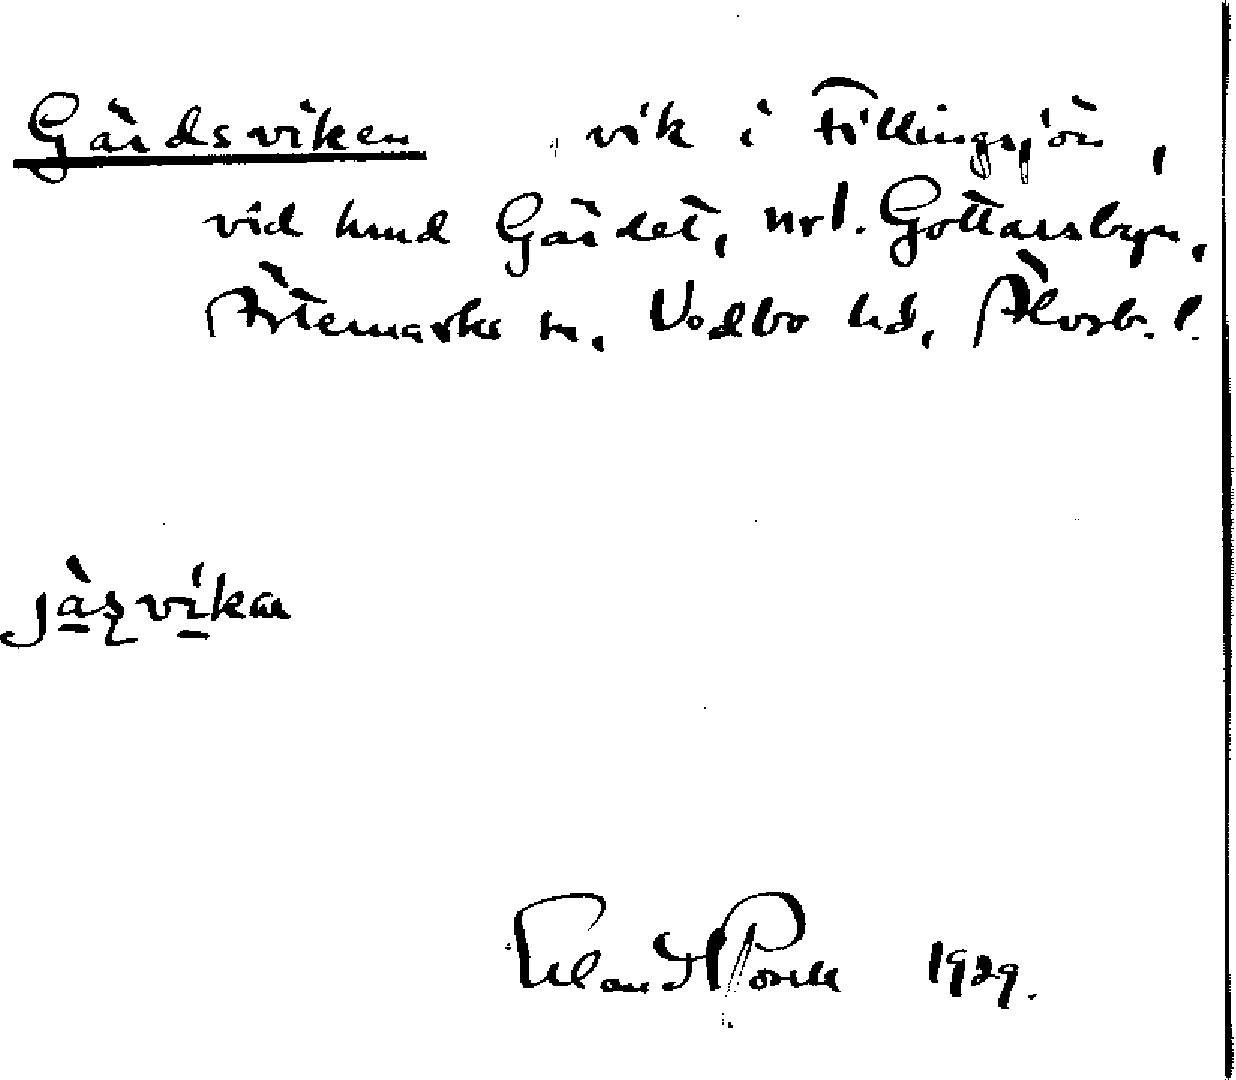 Gärdsviken, vik i Fillingsjön,
vid hmd Gärdet, urt. Gottarsbyn,
Ärtemarks sn, Vedbo hd, Älvsb. l.
jä̀ʂvíkan
1929.